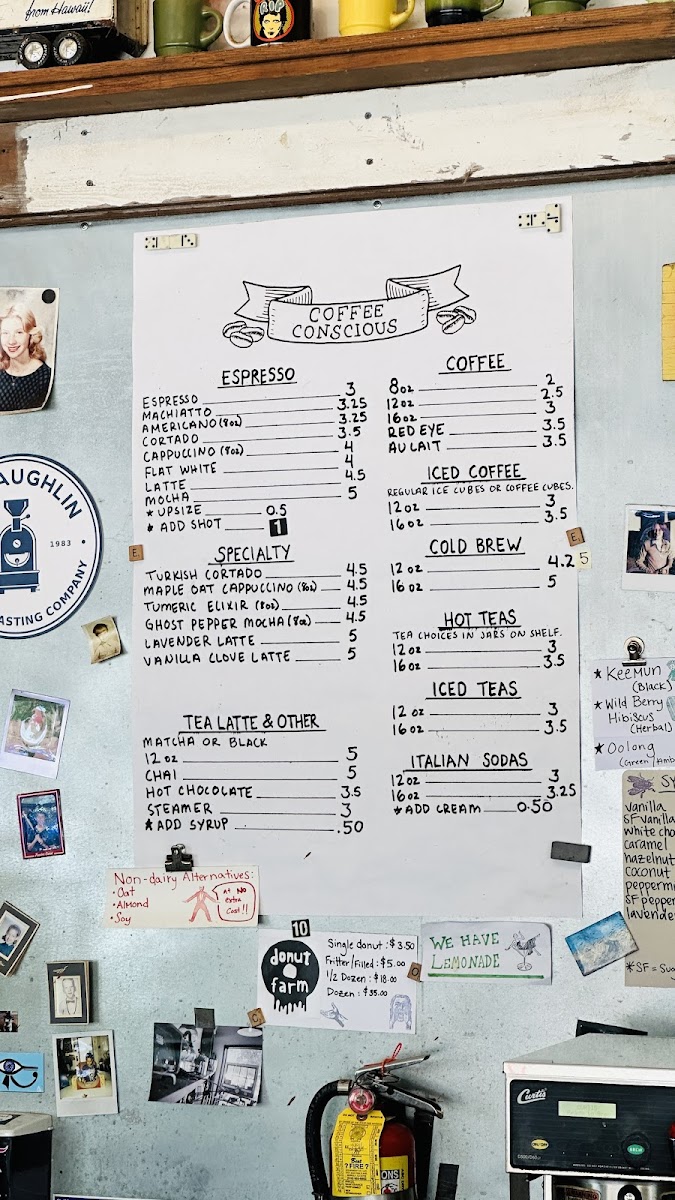 from Hawaii!
RIP
COFFEE
CONSCIOUS
ESPRESSO
ESPRESSO 3
MACHIATTO 3.25
AMERICANO (8oz) 3.25
CORTADO 3.5
CAPPUCCINO (8oz) 4
FLAT WHITE 4
LATTE 4.5
MOCHA 5
* UPSIZE 0.5
* ADD SHOT 1
SPECIALTY
TURKISH CORTADO 4.5
MAPLE OAT CAPPUCCINO (8oz) 4.5
TUMERIC ELIXIR (8oz) 4.5
GHOST PEPPER MOCHA (8oz) 4.5
LAVENDER LATTE 5
VANILLA CLOVE LATTE 5
TEA LATTE & OTHER
MATCHA OR BLACK
12 oz 5
CHAI 5
HOT CHOCOLATE 3.5
STEAMER 3
* ADD SYRUP .50
COFFEE
8oz 2
12oz 2.5
16oz 3
RED EYE 3.5
AU LAIT 3.5
ICED COFFEE
REGULAR ICE CUBES OR COFFEE CUBES.
12oz 3
16oz 3.5
COLD BREW
12 oz 4.25
16 oz 5
HOT TEAS
TEA CHOICES IN JARS ON SHELF.
12oz 3
16oz 3.5
ICED TEAS
12 oz 3
16oz 3.5
ITALIAN SODAS
12oz 3
16oz 3.25
* ADD CREAM 0.50
AUGHLIN
1983
ASTING COMPANY
E
E
* Keemun
(Black)
* Wild Berry
Hibiscus
(Herbal)
* Oolong
(Green
SY
vanilla
SF vanilla
white cho
caramel
hazelnut
coconut
pepperm
SF pepper
lavende
*SF = Sug
Non-dairy Alternatives:
• Oat
• Almond
• Soy
at NO
extra
cost!!
10
donut
farm
Single donut: $3.50
Fritter/Filled: $5.00
1/2 Dozen: $18.00
Dozen: $35.00
O
C
WE HAVE
LEMONADE
Curtis
BREW
?FIRE?